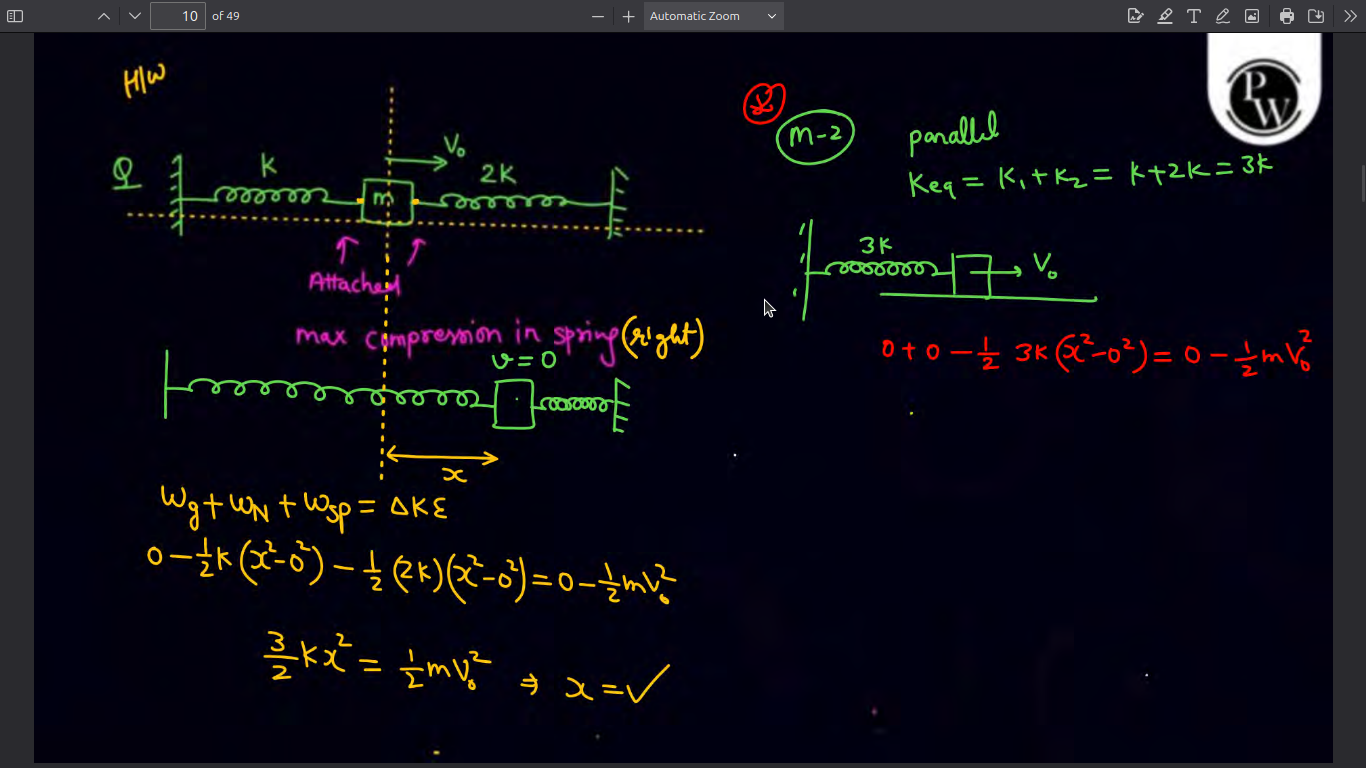 10 of 49
Automatic Zoom
H/W
Q
K
m
V₀
2K
Attached
max compression in spring (right)
v = 0
x
Wg + WN + Wsp = ΔKE
0 - 1/2 K (x² - 0²) - 1/2 (2K) (x² - 0²) = 0 - 1/2 mV₀²
3/2 Kx² = 1/2 mV₀² ⇒ x = ✓
M-2
parallel
Keq = K₁ + K₂ = K + 2K = 3K
3K
V₀
0 + 0 - 1/2 3K (x² - 0²) = 0 - 1/2 mV₀²
PW